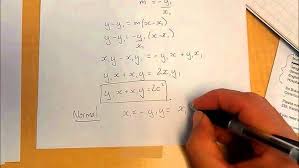 m = -y₁/x₁
y-y₁ = m(x-x₁)
y-y₁ = -y₁/x₁ (x-x₁)
x₁y - x₁y₁ = -y₁x + y₁x₁
y₁x + x₁y = 2x₁y₁
y₁x + x₁y = 2c²
Normal